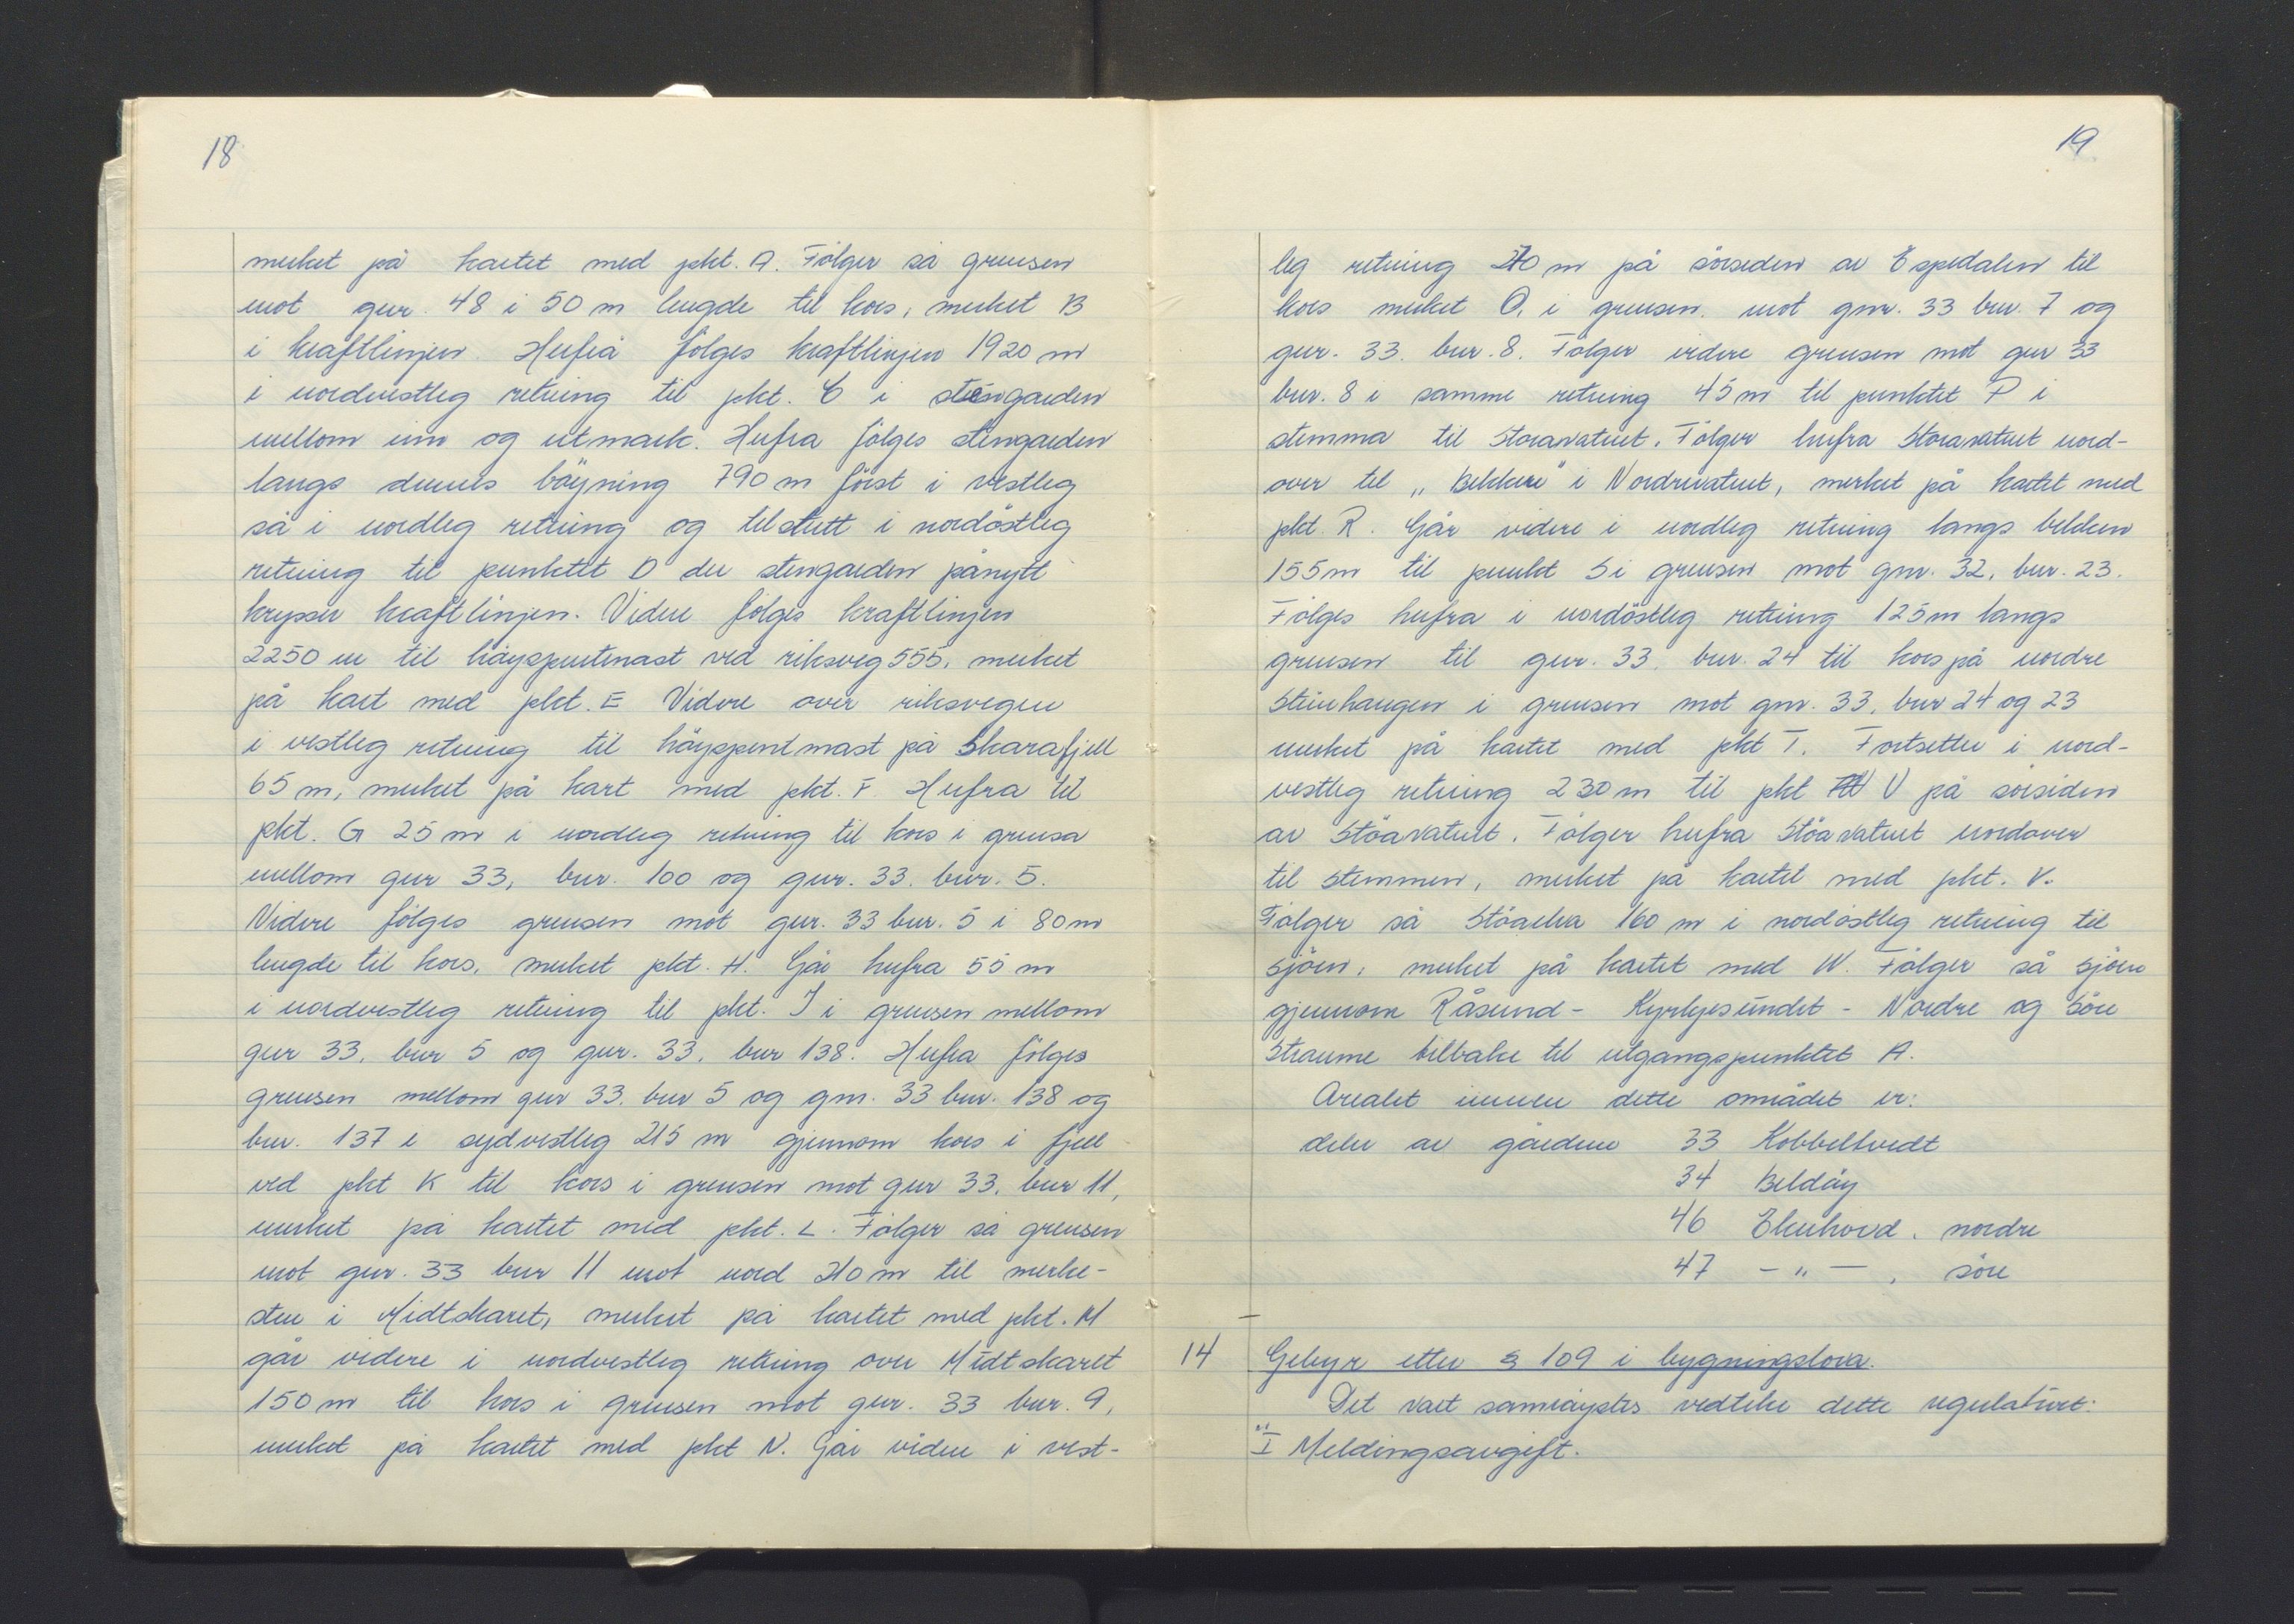 18
merket på kartet med pkt. A. Følger så grensen
mot gnr. 48 i 50 m lengde til kors, merket B
i kraftlinjen. Herfrå følges kraftlinjen 1920 m
i nordvestleg retning til pkt. C i steingarden
mellom inn og utmark. Herfra følges stengarden
langs dennes bøyning 790 m først i vestleg
så i nordleg retning og tilslutt i nordöstleg
retning til punktet D der stengarden pånytt
krysser kraftlinjen. Videre følges kraftlinjen
2250 m til høyspentmast ved riksveg 555, merket
på kart med pkt. E Videre over riksvegen
i vestleg retning til høyspent mast på Skarafjell
65 m, merket på kart med pkt. F. Herfra til
pkt. G 25 m i nordleg retning til kors i grensa
mellom gnr 33, bnr. 100 og gnr. 33. bnr. 5.
Videre følges grensen mot gnr. 33 bnr. 5 i 80 m
lengde til kors, merket pkt. H. Går herfra 55 m
i nordvestleg retning til pkt. J i grensen mellom
gnr 33, bnr 5 og gnr. 33, bnr 138. Herfra følges
grensen mellom gnr 33. bnr 5 og gnr. 33 bnr. 138 og
bnr. 137 i sydvestleg 215 m gjennom kors i fjell
ved pkt K til kors i grensen mot gnr 33, bnr 11,
merket på kartet med pkt. L. Følger så grensen
mot gnr. 33 bnr 11 mot nord 210 m til merke-
sten i Midtskaret, merket på kartet med pkt. M
går videre i nordvestleg retning over Midtskaret
150 m til kors i grensen mot gnr. 33 bnr. 9,
merket på kartet med pkt N. Går videre i vest-
19
leg retning 270 m på sörsiden av Espedalen til
kors merket O, i grensen. mot gnr. 33 bnr. 7 og
gnr. 33. bnr. 8. Følger videre grensen mot gnr 33
bnr. 8 i samme retning 45 m til punktet P i
stemma til Storavatnet. Følger herfra Storavatnet nord-
over til „Bekken" i Nordrevatnet, merket på kartet med
pkt. R. Går videre i nordleg retning langs bekken
155 m til punkt S i grensen mot gnr. 32, bnr. 23.
Følges herfra i nordöstleg retning 125 m langs
grensen til gnr. 33. bnr. 24 til kors på nordre
Steinhaugen i grensen mot gnr. 33, bnr 24 og 23
merket på kartet med pkt T. Fortsetter i nord-
vestleg retning 230 m til pkt U på sörsiden
av Stöavatnet. Følger herfra Stöavatnet nordover
til stemmen, merket på kartet med pkt. V.
Følger så Stöaelva 160 m i nordöstleg retning til
sjöen, merket på kartet med W. Følger så sjöen
gjennom Råsund - Kyrkjesundet - Nordre og Söre
Straume tilbake til utgangspunktet A.
Arealet innen dette området er:
deler av gårdene 33 Kobbeltvedt
34 Bildöy
46 Ekerhovd, nordre
47 - „ - , söre
14 Gebyr etter § 109 i bygningslova.
Det vart samröystes vedteke dette regulativet:
"I Meldingsavgift.